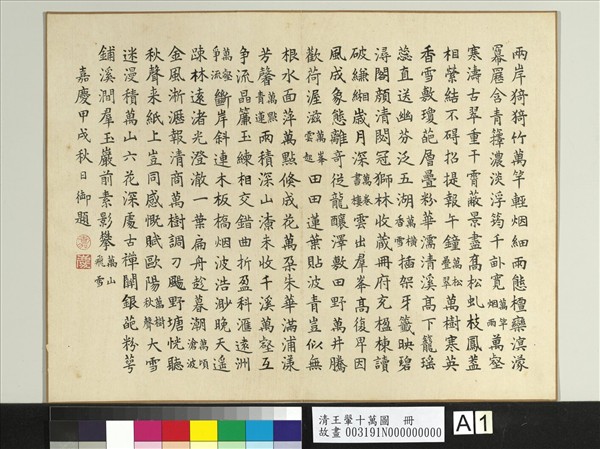 兩岸猗猗竹萬竿輕烟細雨態檀欒溟濛
羃䍥含青籜濃淡浮筠千畝寬萬竿烟雨萬壑
寒濤古翠重干霄蔽景盡髙松虬枝鳳蓋
相縈結不碍招提報午鐘萬松疊翠萬樹寒英
香雪敷瓊葩層疊粉華濡清溪高下籠瑶
蕊直送幽芬泛五湖萬橫香雪插架牙籤映碧
潯閣頗清閟冠獅林收藏冊府充楹棟讀
破縑緗歲月深萬卷書樓雲出羣峯髙復卑因
風成象態離奇從龍釀澤敷田野萬井騰
歡荷渥滋萬峯雲起田田蓮葉貼波青豈似無
根水面萍萬點倐成花萬朶朱華滿浦漾
芳馨萬點青蓮雨積深山潦未收千溪萬壑互
爭流晶簾玉練相交錯曲折盈科滙遠洲
萬壑爭流斷岸斜連木板橋烟波浩渺晚天遥
疎林遠渚光澄澈一葉扁舟趁暮潮萬頃滄波
金風淅瀝報清商萬樹調刁颺野塘恍聽
秋聲来紙上豈同感慨賦歐陽萬樹秋聲大雪
迷漫積萬山六花深處古禪關銀葩粉萼
鋪溪澗羣玉巖前素影攀萬山飛雪
嘉慶甲戌秋日御題
清王翬十萬圖 冊
故畫 003191N000000000
A 1